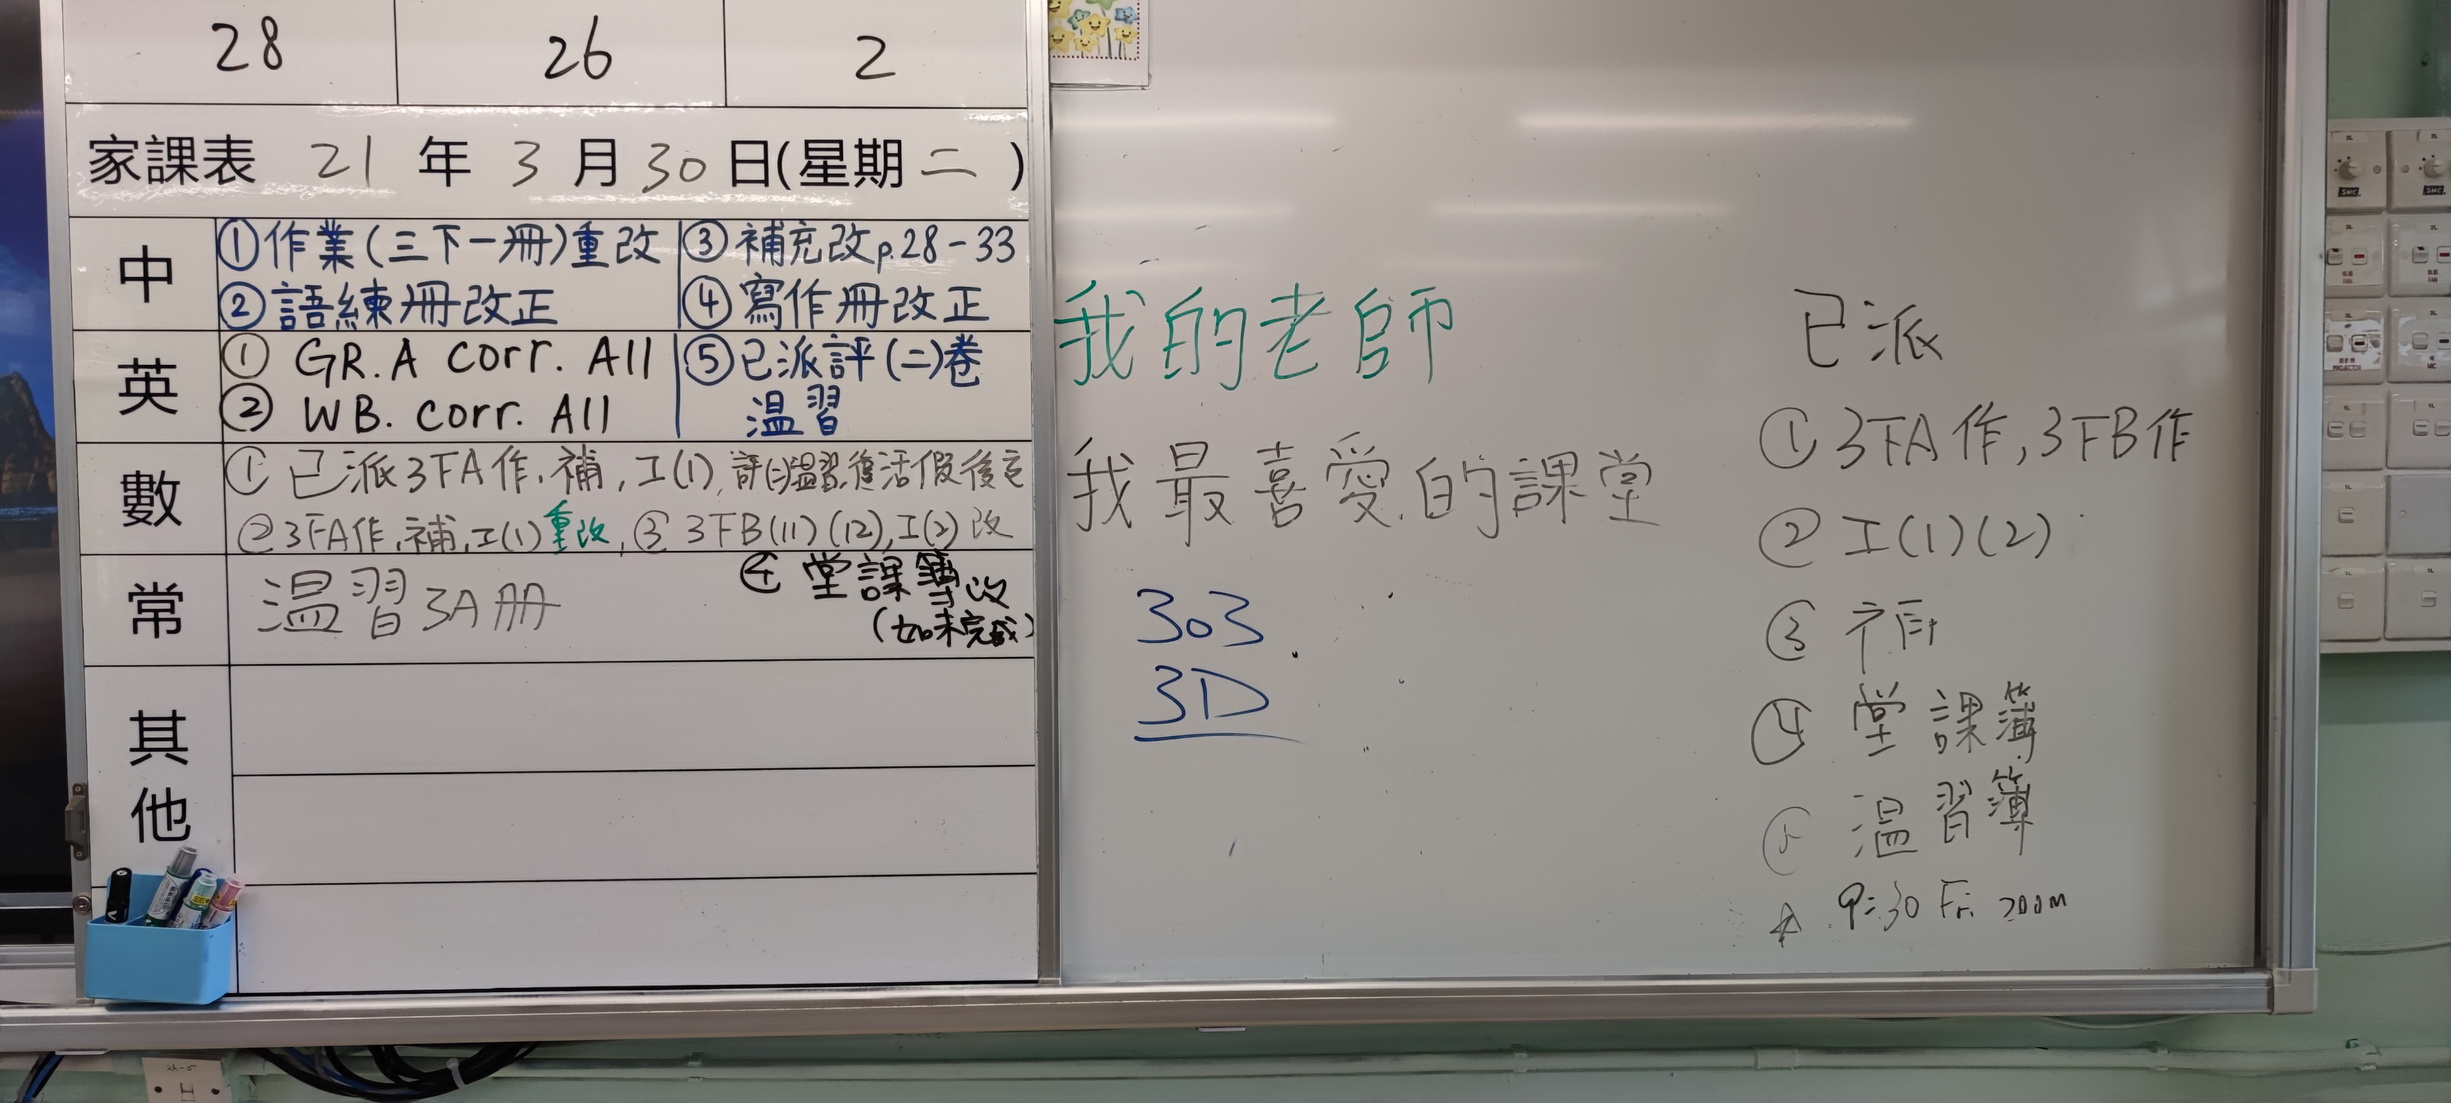 28 26 2
家課表 21 年 3 月 30 日(星期 二 )
中
①作業(三下一冊)重改
②語練冊改正
③補充改p.28-33
④寫作冊改正
⑤已派評(二)卷
溫習
英
① GR.A corr. All
② WB. corr. All
數
① 已派3下A作,補,工(1),評(二)溫習,復活假後交
②3下A作,補,工(1)重改,③ 3下B(11)(12),工(2)改
④ 堂課簿改
(如未完成)
常
溫習3A冊
其他
我的老師
我最喜愛的課堂
303
3D
已派
①3下A作,3下B作
②工(1)(2)
③
④堂課簿
⑤溫習簿
☆ 9:30 Fri zoom